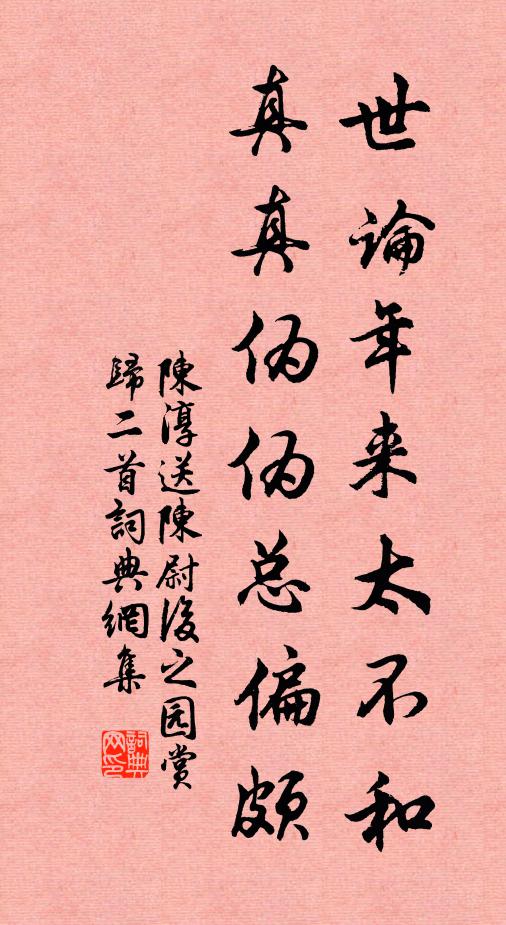 世論年来太不和
真真伪伪总偏颇
陳淳送陳尉後之园赏
歸二首詞典網集
詞典网印